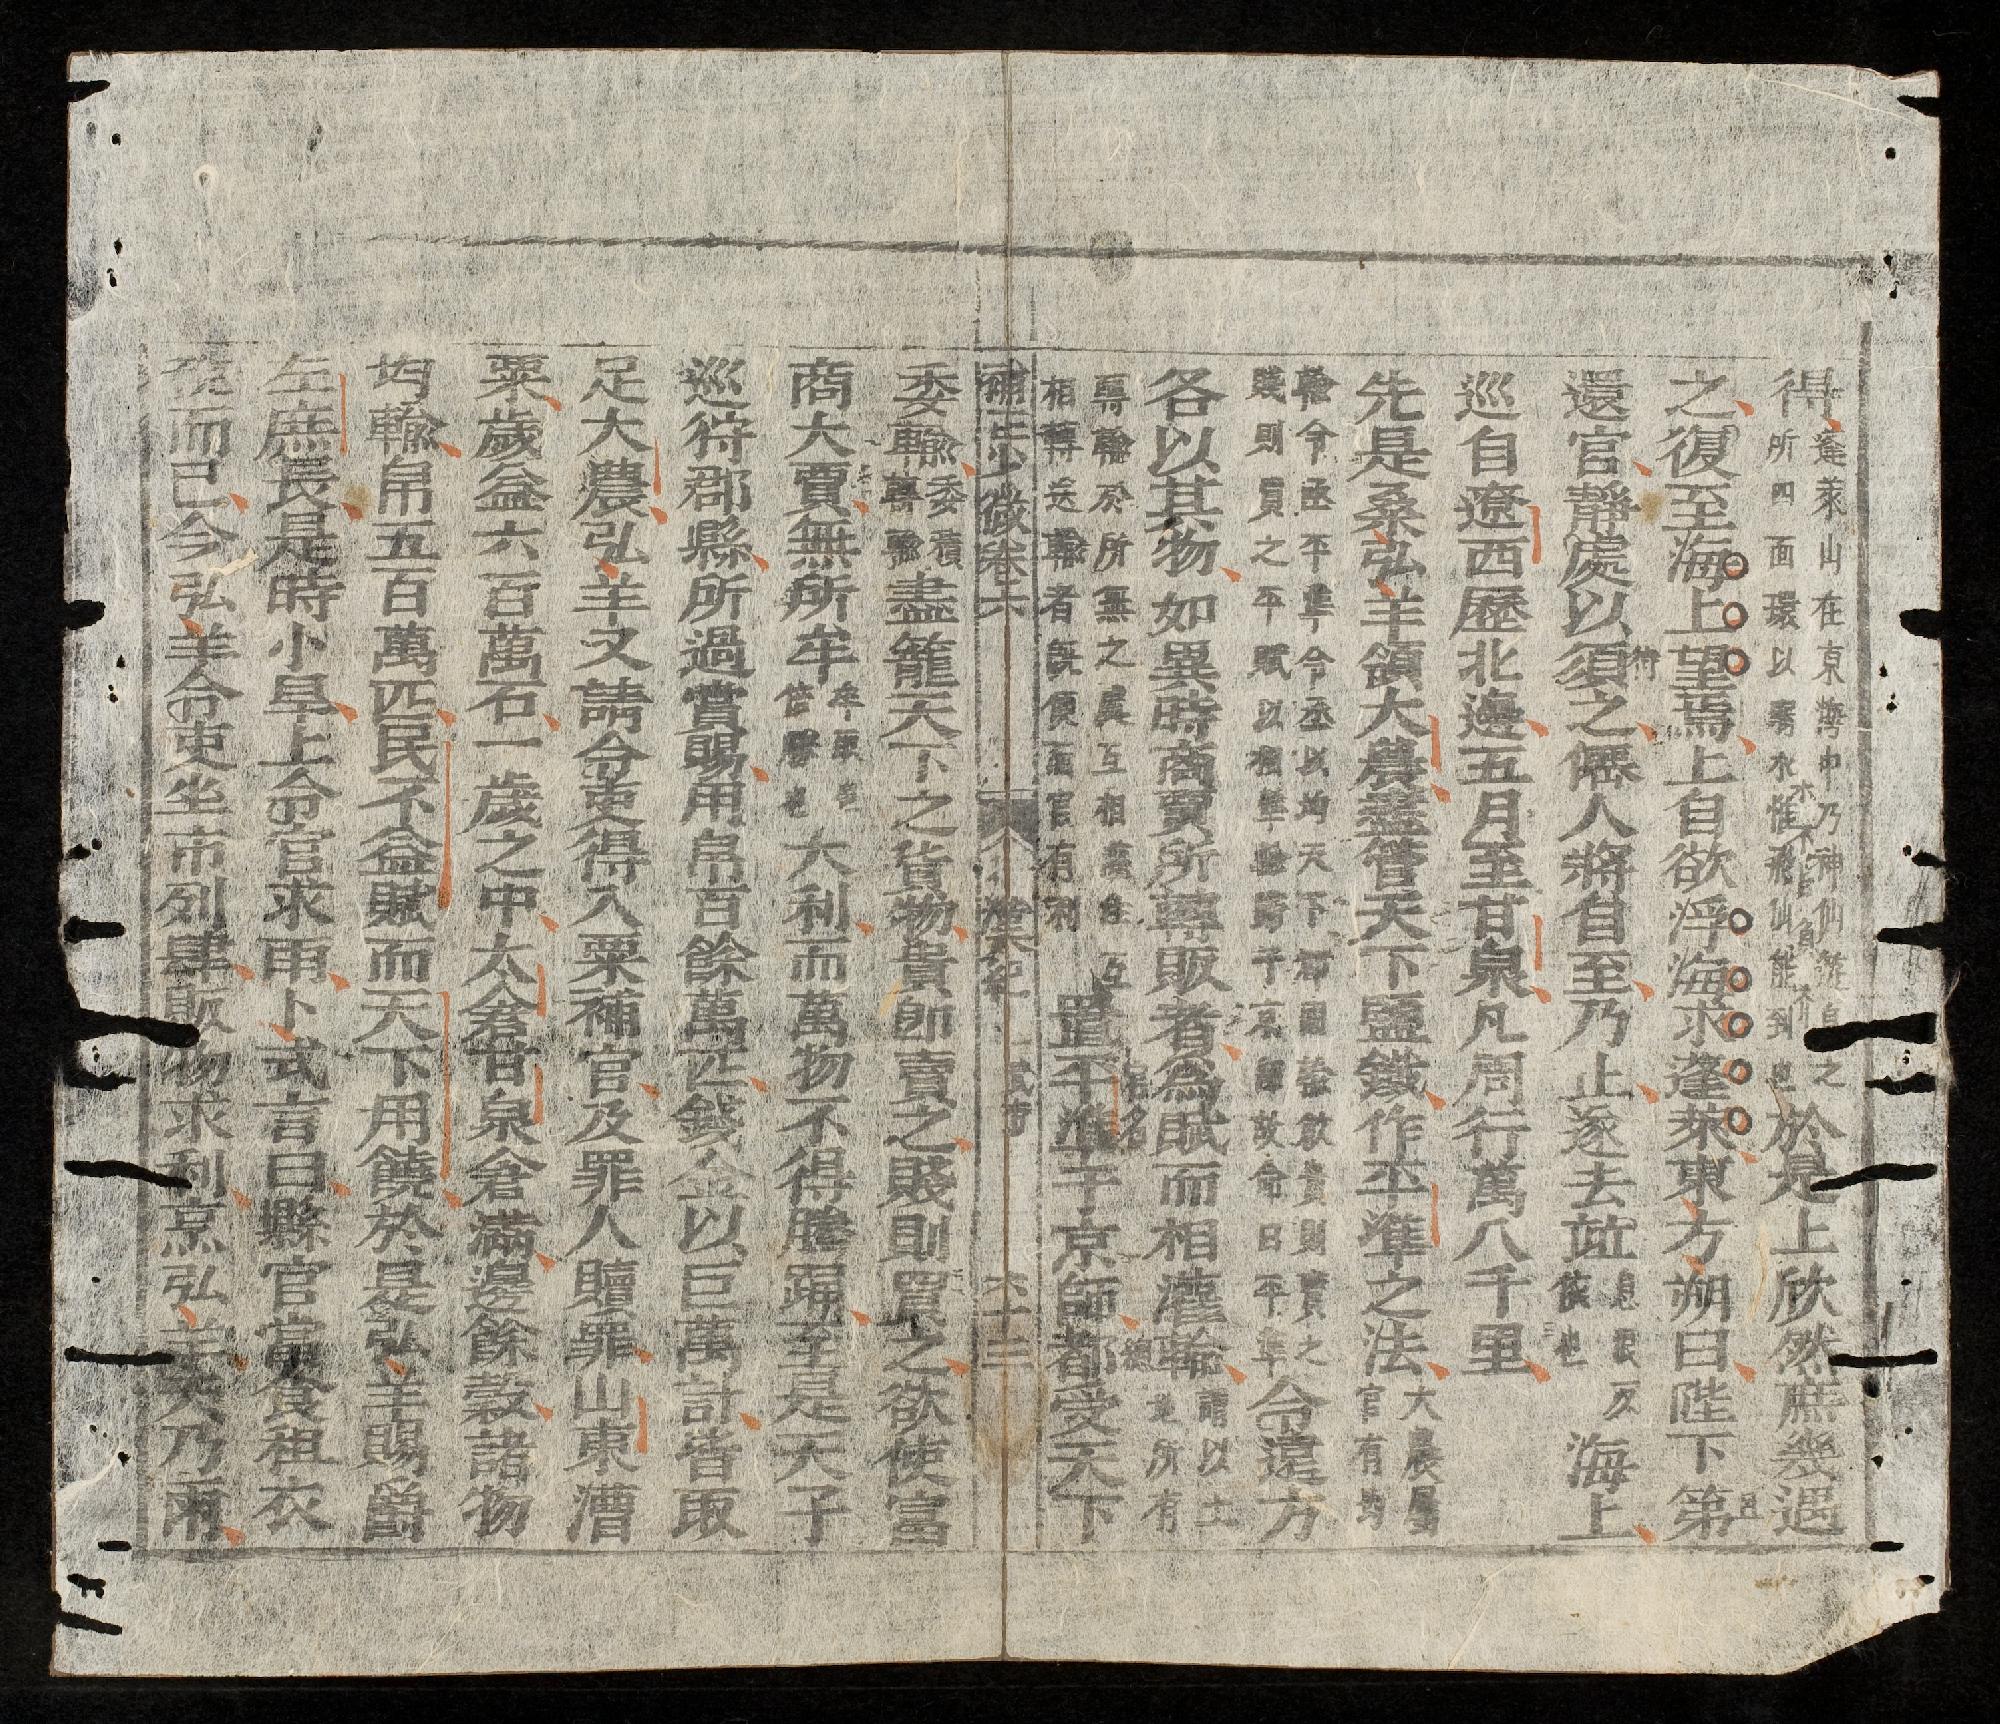 得蓬萊山在東海中乃神仙
所四面環以弱水惟飛仙能到也於是上欣然庶幾遇
之復至海上望焉上自欲浮海求蓬萊東方朔曰陛下第
還宮靜處以須之僊人將自至乃止遂去並海上
巡自遼西歷北邊五月至甘泉凡周行萬八千里
先是桑弘羊領大農盡管天下鹽鐵作平準之法大農屬
官有均
輸令丞平準令丞以均天下郡國
賤則買之平賦以相準輸歸于京師故命曰平準令遠方
各以其物如異時商賈所轉販者為賦而相灌輸謂以土
地所有
轉輸於所無之處互相灌注
相轉送輸者既便而官有利置平準于京師都受天下
補正少微卷六 漢紀 武帝 六十三
委輸委積
轉輸盡籠天下之貨物貴卽賣之賤則買之欲使富
商大賈無所牟牟取也
倍勝也大利而萬物不得騰踊至是天子
巡狩郡縣所過賞賜用帛百餘萬匹錢金以巨萬計皆取
足大農弘羊又請令吏得入粟補官及罪人贖罪山東漕
粟歲益六百萬石一歲之中太倉甘泉倉滿邊餘穀諸物
均輸帛五百萬匹民不益賦而天下用饒於是弘羊賜爵
左庶長是時小旱上令官求雨卜式言曰縣官當食租衣
稅而已今弘羊令吏坐市列肆販物求利烹弘羊天乃雨